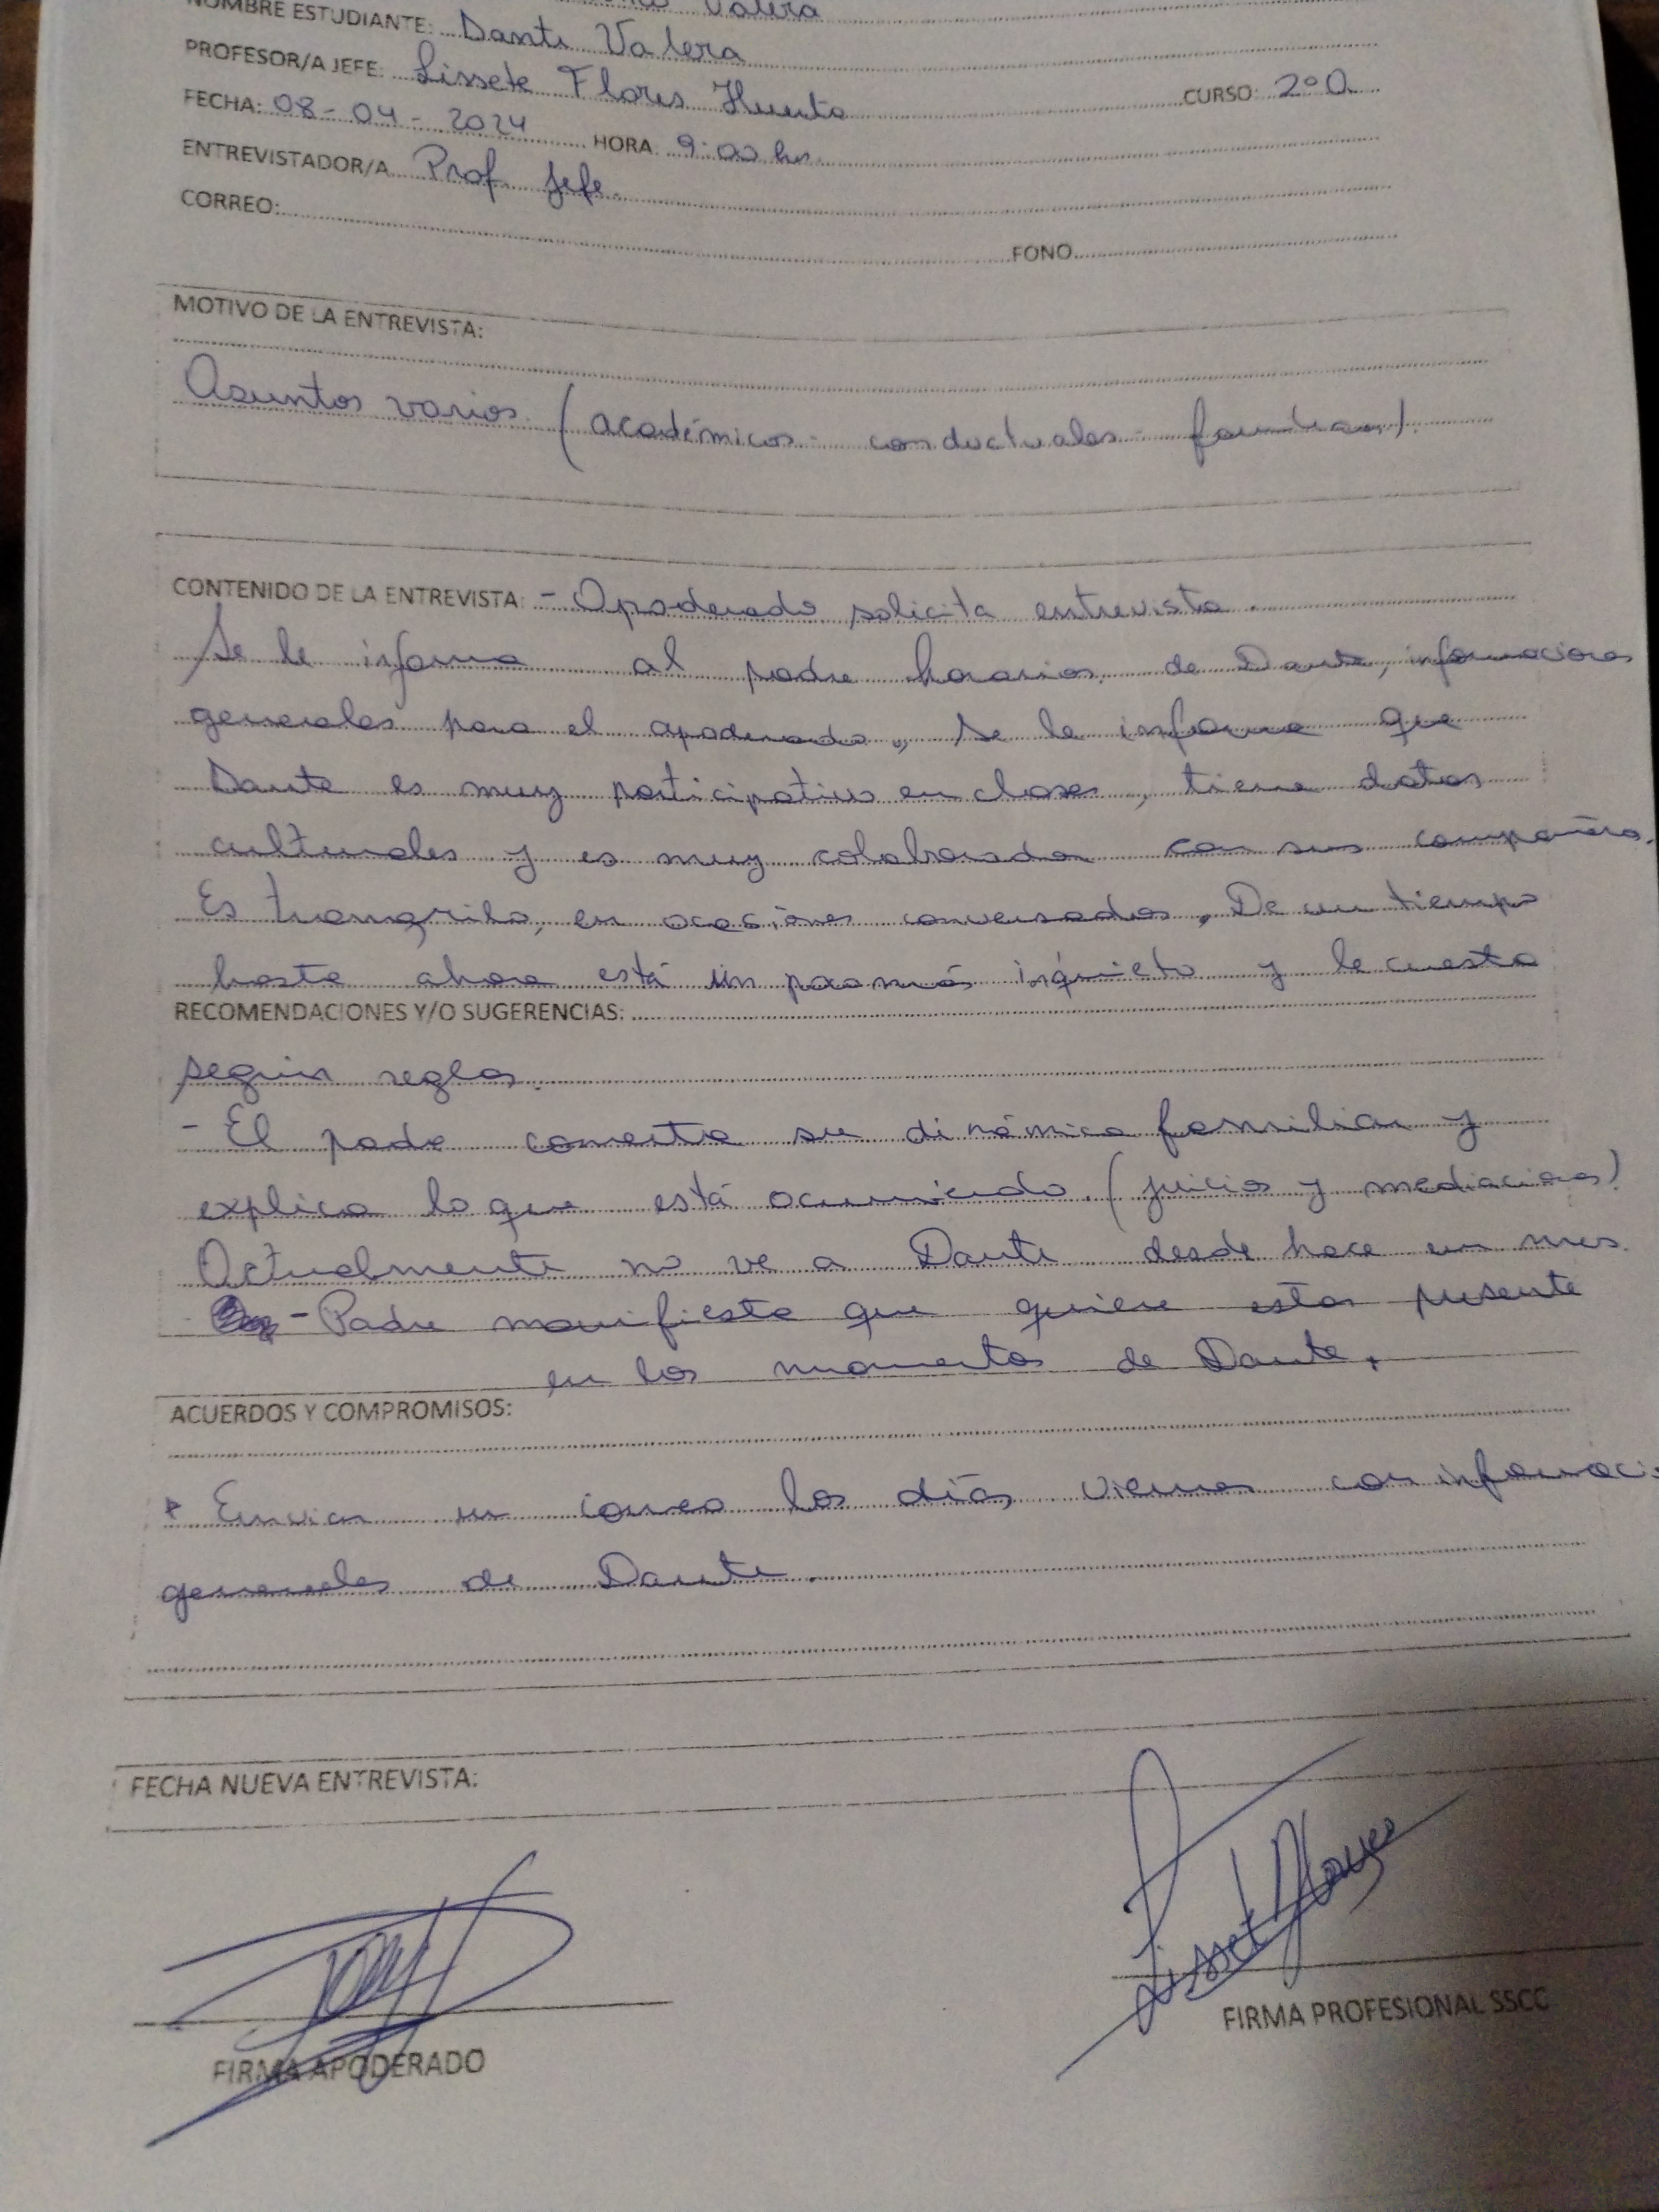 Valera
NOMBRE ESTUDIANTE: Dante Valera
PROFESOR/A JEFE: Lissete Flores Huerta
CURSO: 2°A
FECHA: 08-04-2024 HORA 9:00 hrs.
ENTREVISTADOR/A Prof. Jefe.
CORREO:
FONO
MOTIVO DE LA ENTREVISTA:
Asuntos varios (académicos - conductuales - familiares).
CONTENIDO DE LA ENTREVISTA: - Apoderado solicita entrevista.
Se le informa al padre horarios de Dante, informaciones
generales para el apoderado, se le informa que
Dante es muy participativo en clases, tiene datos
culturales y es muy colaborador con sus compañeros.
Es tranquilo, en ocasiones conversador, De un tiempo
hasta ahora está un poco más inquieto y le cuesta
RECOMENDACIONES Y/O SUGERENCIAS:
seguir reglas.
- El padre comenta su dinámica familiar y
explica lo que está ocurriendo. (juicios y mediaciones)
Actualmente no ve a Dante desde hace un mes.
- Padre manifiesta que quiere estar presente
en los momentos de Dante.
ACUERDOS Y COMPROMISOS:
* Enviar un correo los días viernes con informaci
generales de Dante.
FECHA NUEVA ENTREVISTA:
Lisset Flores
FIRMA PROFESIONAL SSCC
FIRMA APODERADO